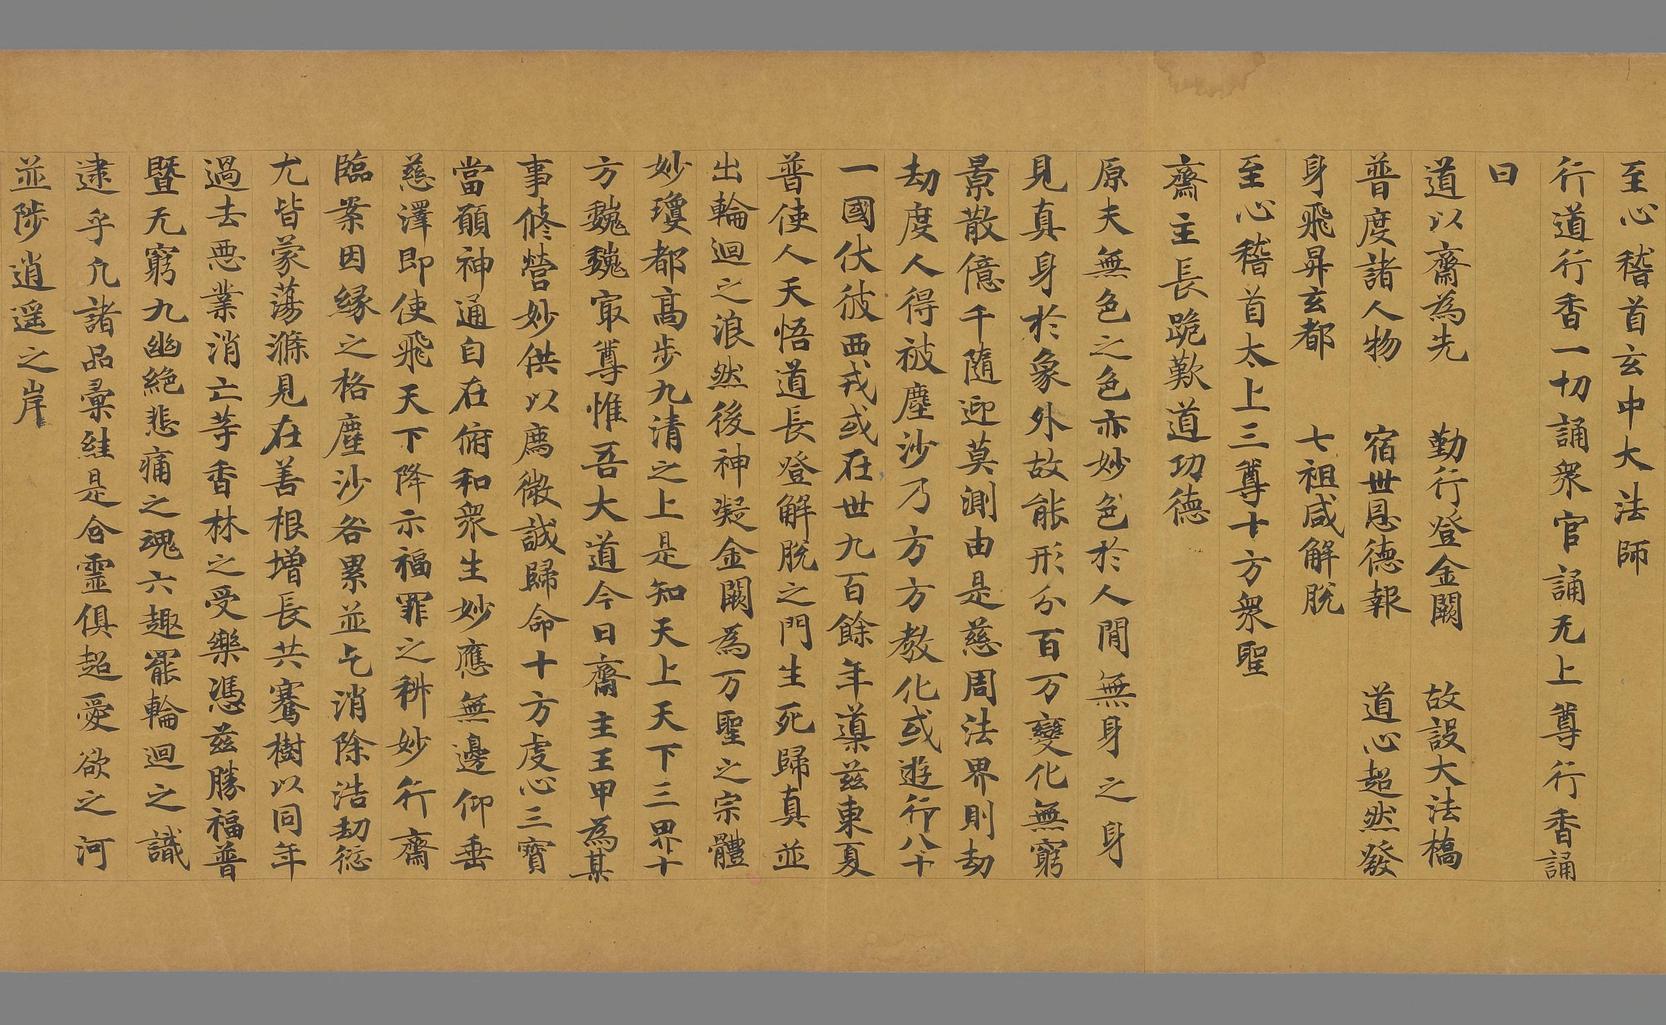 至心稽首玄中大法師
行道行香一切誦衆官誦无上尊行香誦
曰
道以齋為先 勤行登金闕 故設大法橋
普度諸人物 宿世恩德報 道心超然發
身飛昇玄都 七祖咸解脫
至心稽首太上三尊十方衆聖
齋主長跪歎道功德
原夫無色之色亦妙色於人間無身之身
見真身於象外故能形分百万變化無窮
景散億千隨迎莫測由是慈周法界則劫
劫度人得被塵沙乃方方教化或遊行八十
一國伏彼西戎或在世九百餘年導茲東夏
普使人天悟道長登解脫之門生死歸真並
出輪迴之浪然後神凝金闕為万聖之宗體
妙瓊都高步九清之上是知天上天下三界十
方巍巍㝡尊惟吾大道今日齋主王甲為某
事修營妙供以廌微誠歸命十方虔心三寶
當願神通自在俯和衆生妙應無邊仰垂
慈澤即使飛天下降示福罪之科妙行齋
臨棠因緣之格塵沙咎累並乞消除浩劫愆
尤皆蒙蕩滌見在善根增長共騫樹以同年
過去惡業消亡等香林之受樂憑茲勝福普
暨无窮九幽絕悲痛之魂六趣罷輪迴之識
逮乎凢諸品彙維是含靈俱超愛欲之河
並陟逍遥之岸